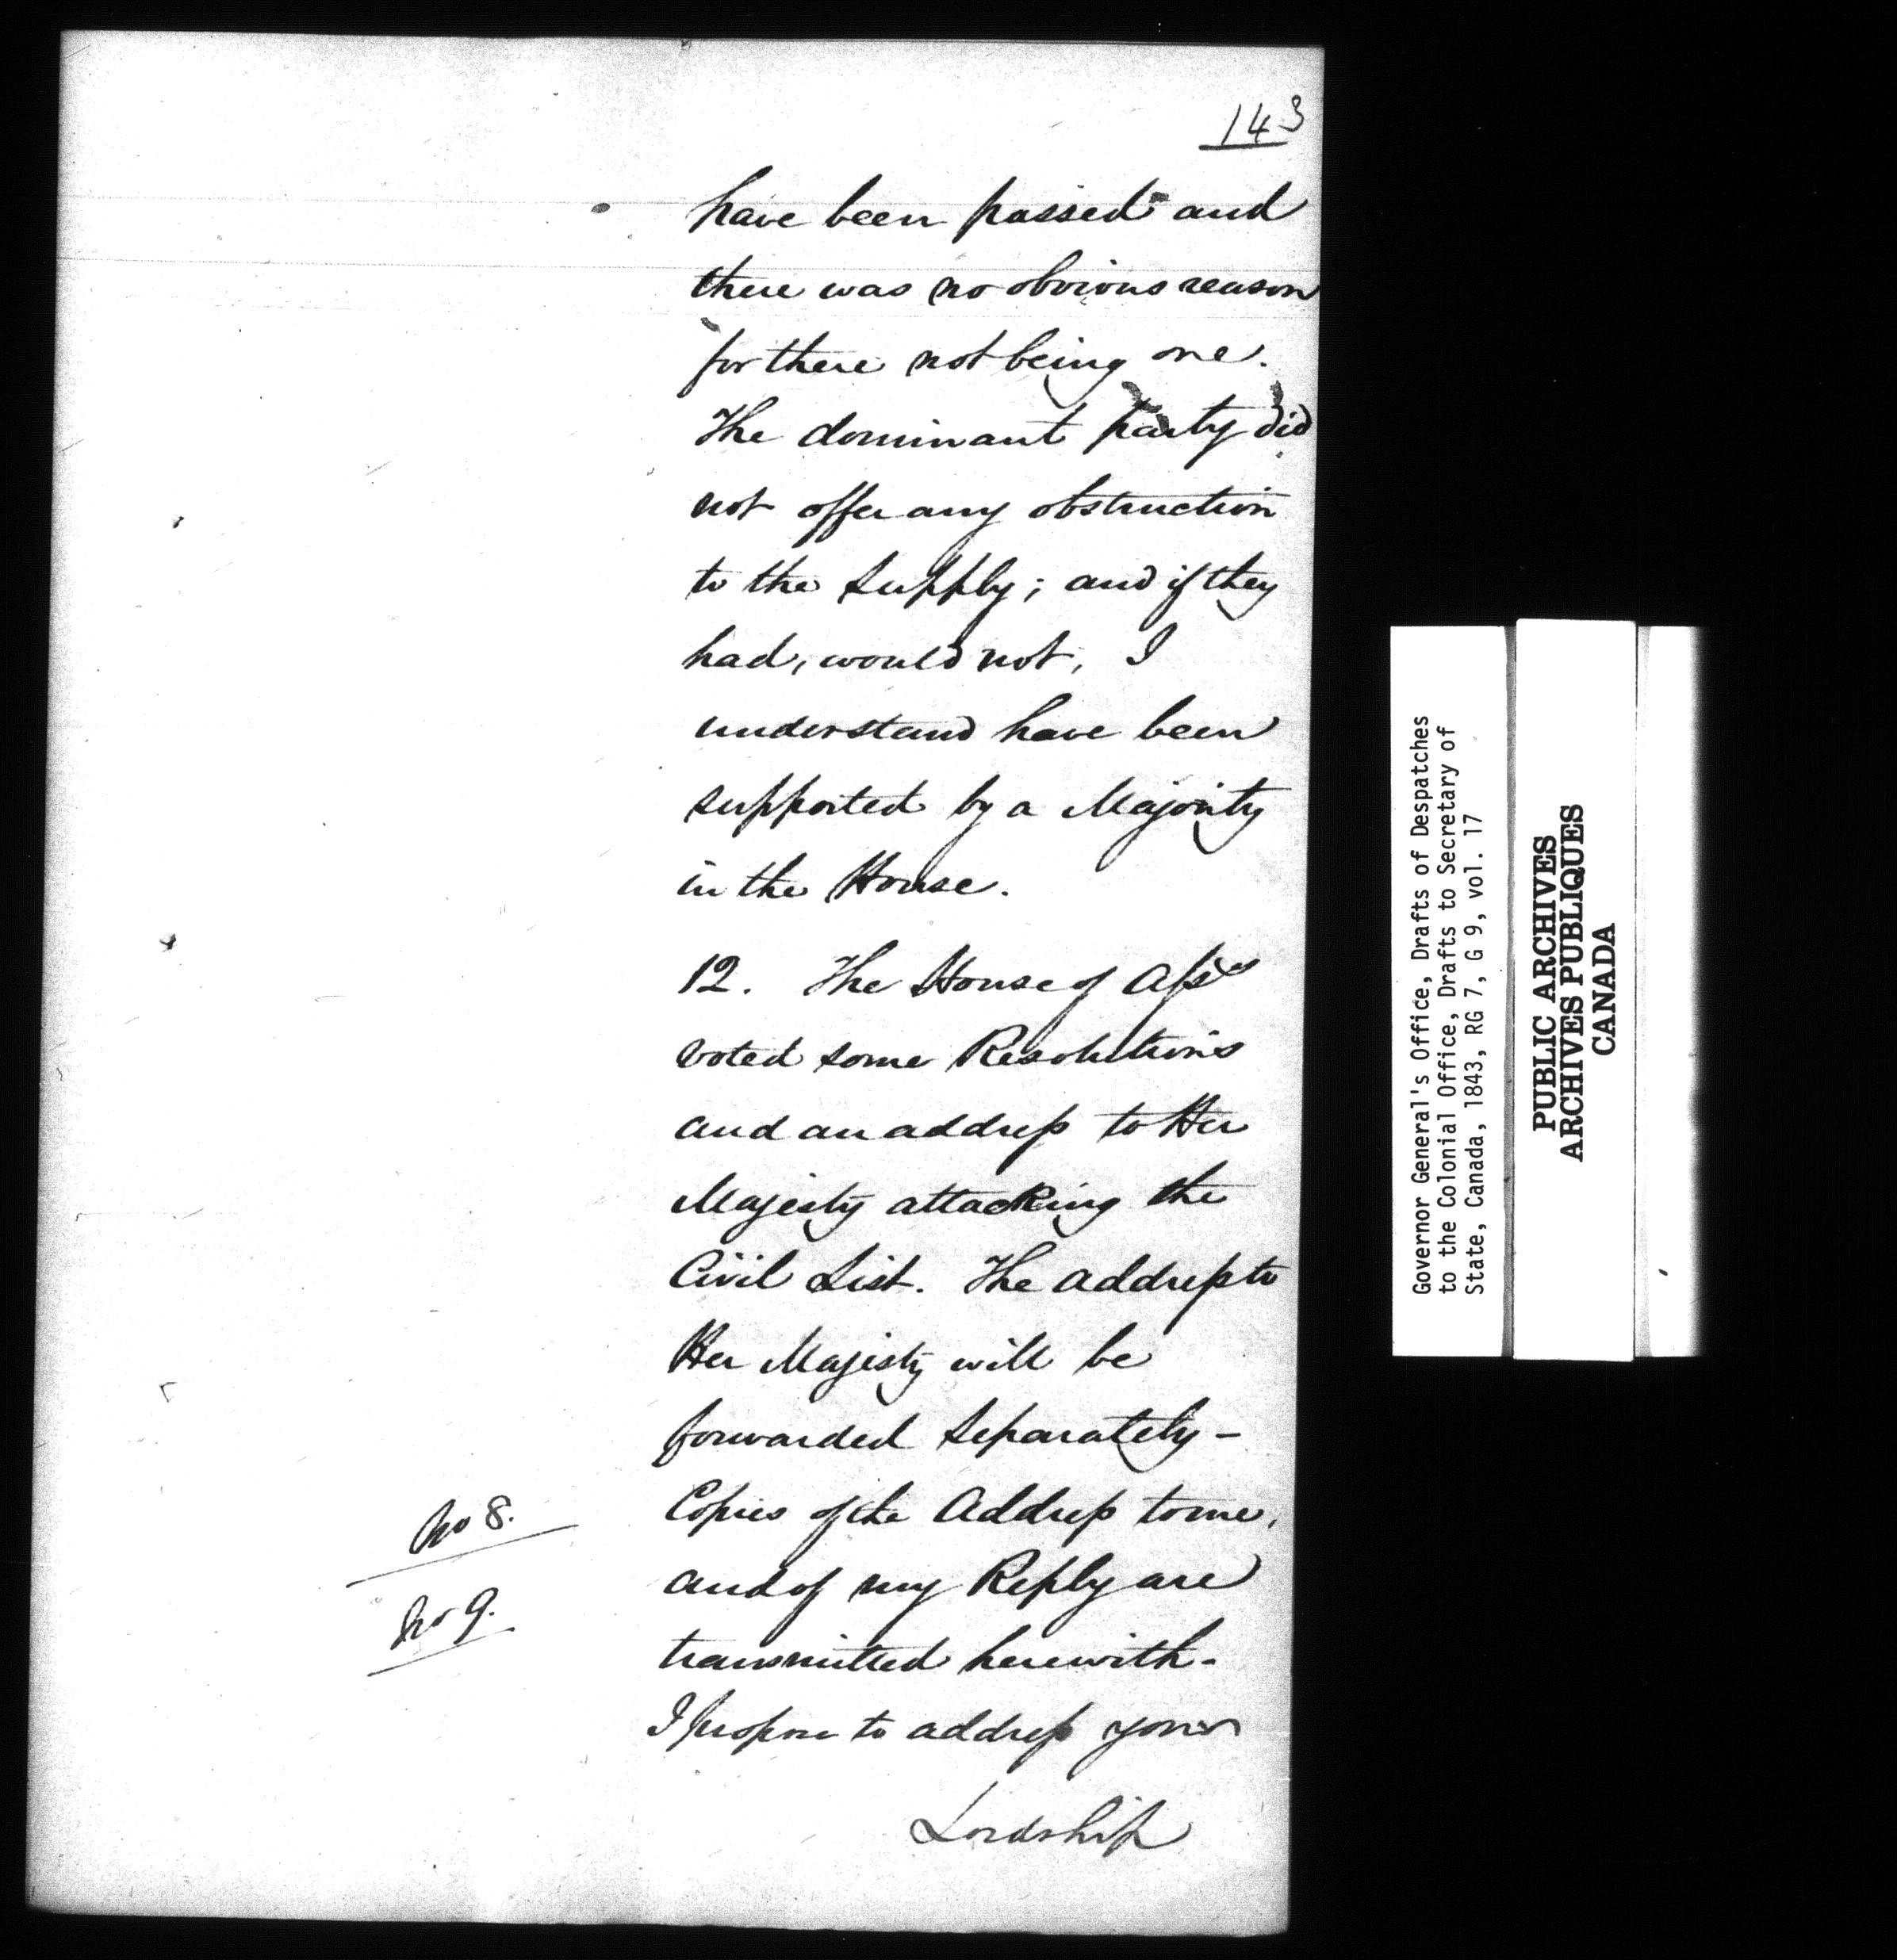 143
have been passed and
there was no obvious reason
for there not being one.
The dominant party did
not offer any obstruction
to the Supply; and if they
had, would not, I
understand have been
supported by a Majority
in the House.
12. The House of Assy
voted some Resolutions
and an address to Her
Majesty attacking the
Civil List. The address to
Her Majesty will be
forwarded separately –
No 8.
Copies of the Address to me,
No 9.
and of my Reply are
transmitted herewith -
I propose to address your
Lordship
Governor General's Office, Drafts of Despatches
to the Colonial Office, Drafts to Secretary of
State, Canada, 1843, RG 7, G 9, vol. 17
PUBLIC ARCHIVES
ARCHIVES PUBLIQUES
CANADA